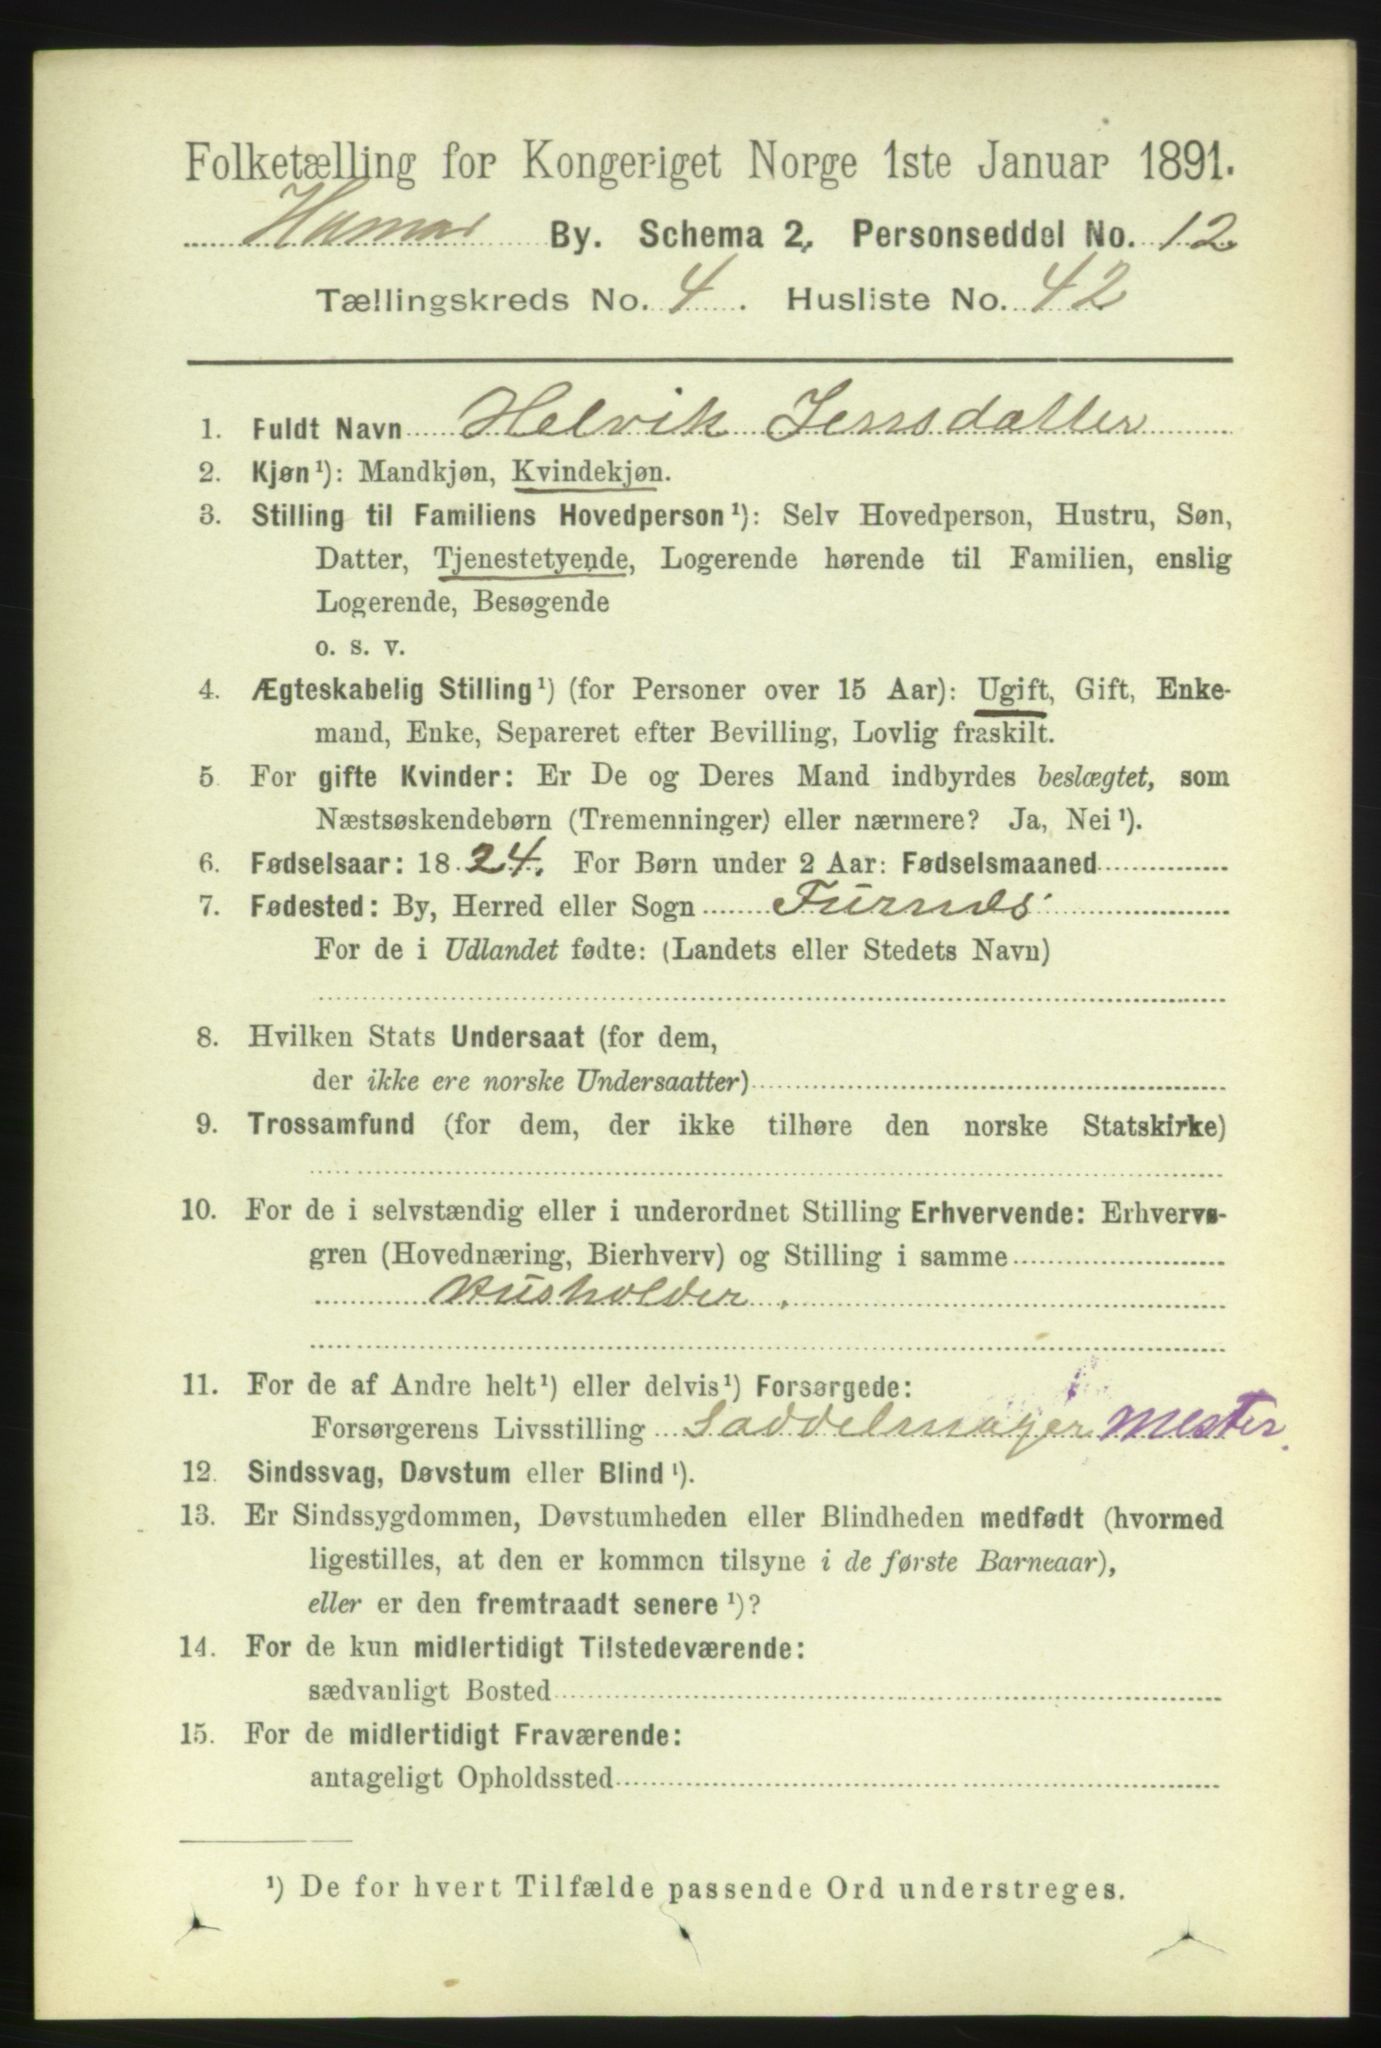 Folketælling for Kongeriget Norge 1ste Januar 1891.
Hamar By. Schema 2. Personseddel No. 12
Tællingskreds No. 4. Husliste No. 42
1. Fuldt Navn Helvik Jensdatter
2. Kjøn¹): Mandkjøn, Kvindekjøn.
3. Stilling til Familiens Hovedperson¹): Selv Hovedperson, Hustru, Søn,
Datter, Tjenestetyende, Logerende hørende til Familien, enslig
Logerende, Besøgende
o. s. v.
4. Ægteskabelig Stilling¹) (for Personer over 15 Aar): Ugift, Gift, Enke-
mand, Enke, Separeret efter Bevilling, Lovlig fraskilt.
5. For gifte Kvinder: Er De og Deres Mand indbyrdes beslægtet, som
Næstsøskendebørn (Tremenninger) eller nærmere? Ja, Nei¹).
6. Fødselsaar: 1824. For Børn under 2 Aar: Fødselsmaaned
7. Fødested: By, Herred eller Sogn Furnæs
For de i Udlandet fødte: (Landets eller Stedets Navn)
8. Hvilken Stats Undersaat (for dem,
der ikke ere norske Undersaatter)
9. Trossamfund (for dem, der ikke tilhøre den norske Statskirke)
10. For de i selvstændig eller i underordnet Stilling Erhvervende: Erhvervs-
gren (Hovednæring, Bierhverv) og Stilling i samme
Husholder.
11. For de af Andre helt¹) eller delvis¹) Forsørgede:
Forsørgerens Livsstilling Saddelmager Mester.
12. Sindssvag, Døvstum eller Blind¹).
13. Er Sindssygdommen, Døvstumheden eller Blindheden medfødt (hvormed
ligestilles, at den er kommen tilsyne i de første Barneaar),
eller er den fremtraadt senere¹)?
14. For de kun midlertidigt Tilstedeværende:
sædvanligt Bosted
15. For de midlertidigt Fraværende:
antageligt Opholdssted
¹) De for hvert Tilfælde passende Ord understreges.